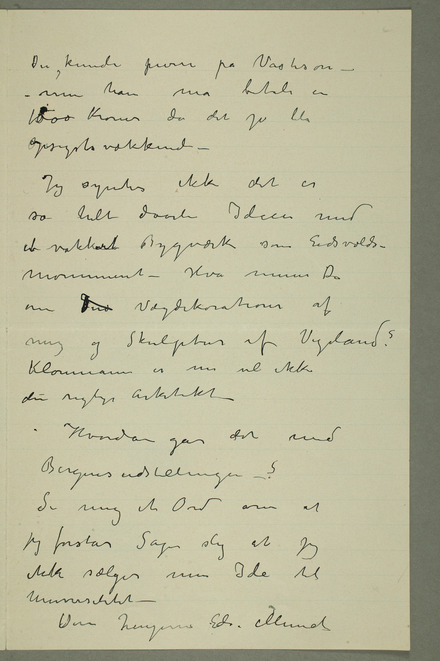 Du kunde prøve på Vastson –
– men han må betale en
1500 Kroner da det jo ble
opsigtsvækkende –
Jeg syntes ikke det er
så helt daarlig Ideen med
et vakkert Bygværk som Eidsvolds-
monument – Hva mener Du
om Vægdekorationer af
mig og Skulptur af Vigeland?
Klonmann er nu vel ikke
den rigtige Arkitekt –
Hvordan gar det med
Bergensudstillingen – ?
Si mig et Ord om at
jeg forstår Sagen slig at jeg
ikke sælger min Ide til
Universitetet –
Din hengivne Edv. Munch